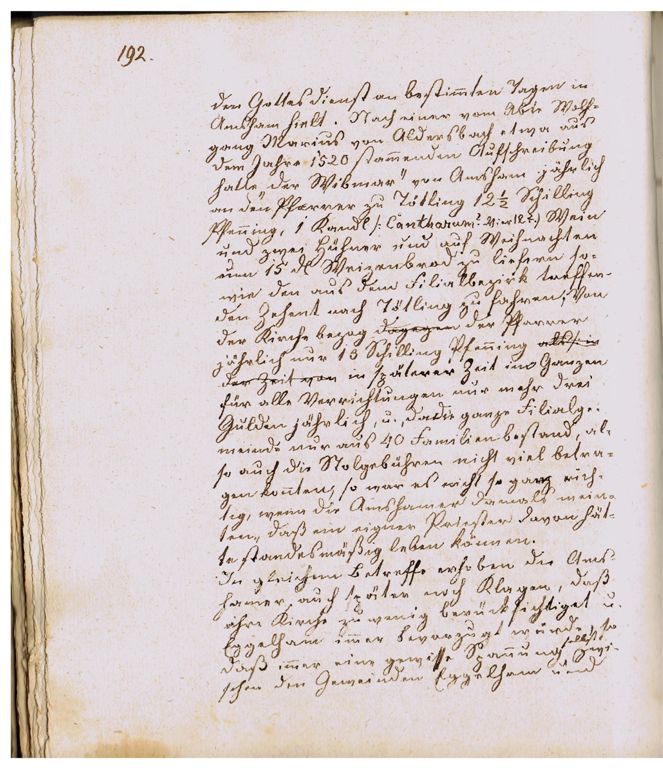 192.
den Gottesdienst an bestimmten Tagen in
Amsham hielt. Nach einer vom Abte Wolf-
gang Marius von Aldersbach etwa aus
dem Jahre 1520 stammenden Aufschreibung
hatte "der Widmar" von Amsham jährlich
an den Pfarrer zu Tötling 12 ½ Schilling
Pfenning, 1 Kandl /: Cantharum: Wein
und zwei Hühner und auf Weihnachten
um 15 dl Weizenbrod zu liefern so-
wie den aus dem Filialbezirk treffen-
den Zehent nach Tötling zu fahren; Von
der Kirche bezog dagegen der Pfarrer
jährlich nur 13 Schilling Pfenning
der Zeit von in späterer Zeit im Ganzen
für alle Verrichtungen nur mehr drei
Gulden jährlich, u., da die ganze Filialge-
meinde nur aus 40 Familien bestand, al-
so auch die Stolgebühren nicht viel betra-
gen konnten, so war es nicht so ganz rich-
tig, wenn die Amshamer damals mein-
ten, daß ein eigner Priester davon hät-
te standesmäßig leben können.
In gleichem Betreffe erhoben die Ams-
hamer auch später noch Klagen, daß
ihre Kirche zu wenig berücksichtiget u.
Eggelham immer bevorzugt würde, so
daß immer eine gewisse Spannung zwi-
schen den Gemeinden Eggelham und